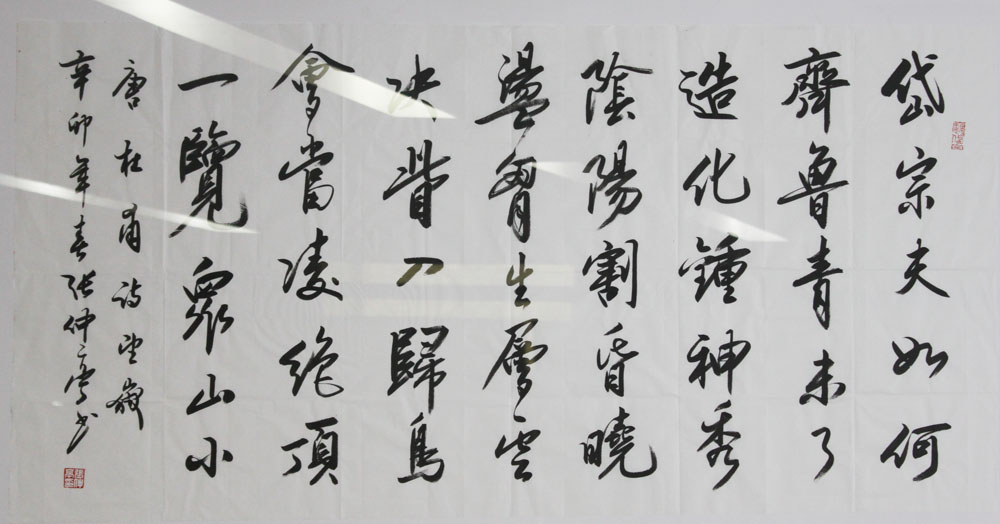 岱宗夫如何
齊魯青未了
造化鍾神秀
陰陽割昏曉
盪胷生層雲
决眥入歸鳥
會當凌絶頂
一覽衆山小
唐杜甫詩望嶽
辛卯年春張仲亭书